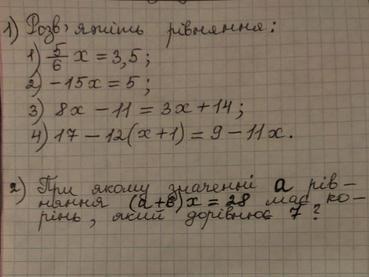 1) Розв'яжіть рівняння:
1) 5/6 x = 3,5;
2) -15x = 5;
3) 8x - 11 = 3x + 14;
4) 17 - 12(x+1) = 9 - 11x.
2) При якому значенні а рів-
няння (а+6)x = 28 має ко-
рінь, який дорівнює 7?